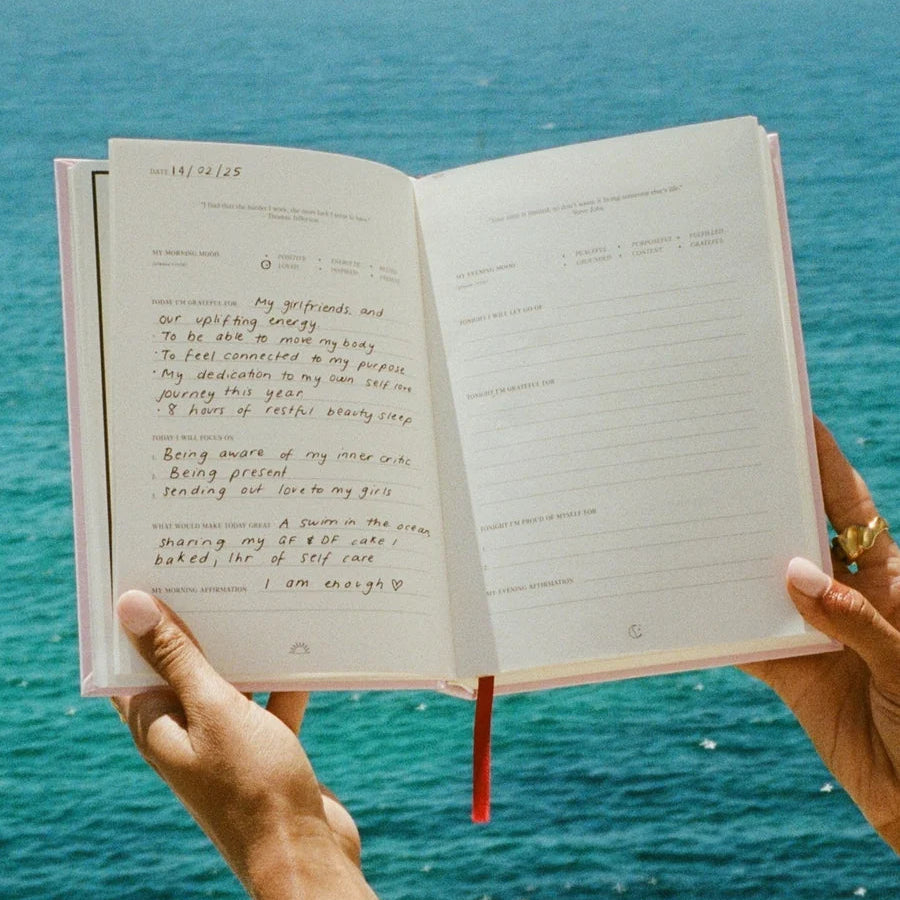 DATE 14/02/25
"I find that the harder I work, the more luck I seem to have."
Thomas Jefferson
MY MORNING MOOD
POSITIVE
ENERGETIC
LOVED
INSPIRED
TODAY I'M GRATEFUL FOR My girlfriends and
our uplifting energy
· To be able to move my body
· To feel connected to my purpose
· My dedication to my own self love
journey this year
· 8 hours of restful beauty sleep
TODAY I WILL FOCUS ON
1. Being aware of my inner critic
Being present
3. sending out love to my girls
WHAT WOULD MAKE TODAY GREAT A swim in the ocean,
sharing my GF & DF cake I
baked, 1hr of self care
MY MORNING AFFIRMATION I am enough ♡
"Your time is limited, so don't waste it living someone else's life."
Steve Jobs
MY EVENING MOOD
PEACEFUL
PURPOSEFUL
FULFILLED
GROUNDED
CONTENT
GRATEFUL
TONIGHT I WILL LET GO OF
TONIGHT I'M GRATEFUL FOR
TONIGHT I'M PROUD OF MYSELF FOR
MY EVENING AFFIRMATION